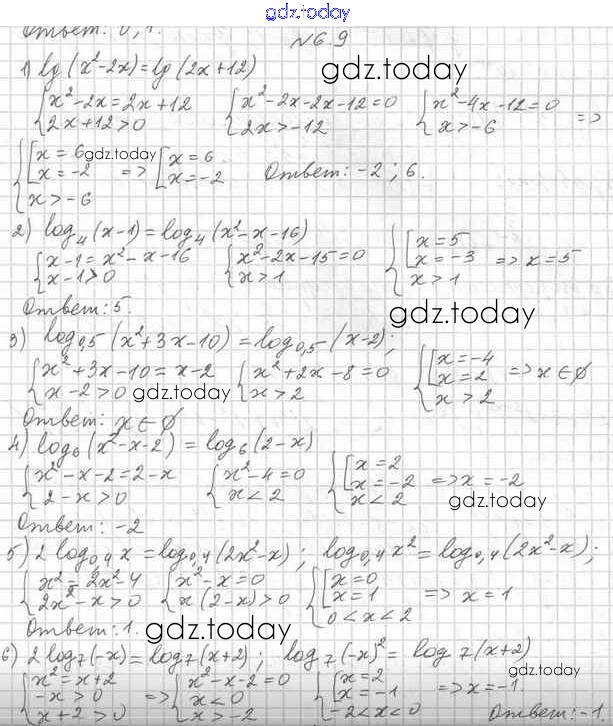 gdz.today
Ответ: 0,1.
№6.9
1) lg(x²-2x)=lg(2x+12)
gdz.today
{x²-2x=2x+12 {x²-2x-2x-12=0 {x²-4x-12=0
{2x+12>0 {2x>-12 {x>-6 =>
{[x=6 gdz.today [x=6
{[x=-2 => [x=-2 Ответ: -2; 6.
{x>-6
2) log₄(x-1)=log₄(x²-x-16)
{x-1=x²-x-16 {x²-2x-15=0 {[x=5
{x-1>0 {x>1 {[x=-3 => x=5
{x>1
Ответ: 5.
gdz.today
3) log₀,₅(x²+3x-10)=log₀,₅(x-2);
{x²+3x-10=x-2 {x²+2x-8=0 {[x=-4
{x-2>0 gdz.today {x>2 {[x=2 => x∈∅
{x>2
Ответ: x∈∅
4) log₆(x²-x-2)=log₆(2-x)
{x²-x-2=2-x {x²-4=0 {[x=2
{2-x>0 {x<2 {[x=-2 => x=-2
{x<2
gdz.today
Ответ: -2
5) 2log₀,₄x=log₀,₄(2x²-x); log₀,₄x²=log₀,₄(2x²-x);
{x²=2x²-4 {x²-x=0 {[x=0
{2x²-x>0 {x(2-x)>0 {[x=1 => x=1
{0<x<2
Ответ: 1. gdz.today
6) 2log₇(-x)=log₇(x+2); log₇(-x)²=log₇(x+2)
gdz.today
{x²=x+2 {x²-x-2=0 {[x=2
{-x>0 => {x<0 {[x=-1 => x=-1.
{x+2>0 {x>-2 {-2<x<0 Ответ: -1.